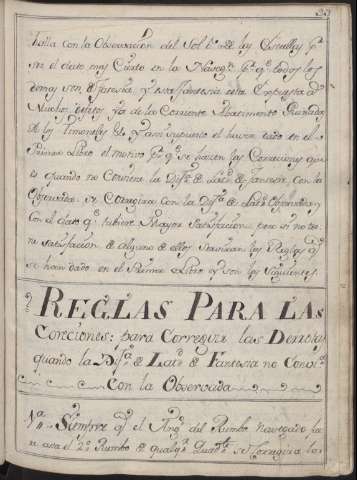 33
halla con la Observacion del Sol ô de las Estrellas pr.
ser el dato mas Cierto en la Naveg.n pr. q.e todos los
demas son de fantesia, y esta fantesia esta Expuesta a
Muchos defetos ya de las Corrientes Abatimento
de los Timoneles &a. y assi supuesto el haver dado en el
Primer Libro el motivo pr. q.e se hacen las Correciones que
es quando no Conviene la Difa. de Latd. de Fantesia Con la
Observada se Corregira con la Difa. de Latd. Observada y
con el dato q.e tubiere Mayor Satisfacion pero si no tie
ne satisfacion de alguno de ellos Seusaran las Reglas q.e
se han dado en el Primer Libro q.e son las Siguientes.
REGLAS PARA LAS
Correciones: para Corregir las Derrotas
quando la Difa. de Latd. de Fantesia no Convie.
Con la Observada
1a. Siempre q.e el Ango. del Rumbo navegado
el 2o. Rumbo de qualqr. Quarte. se Corregira los